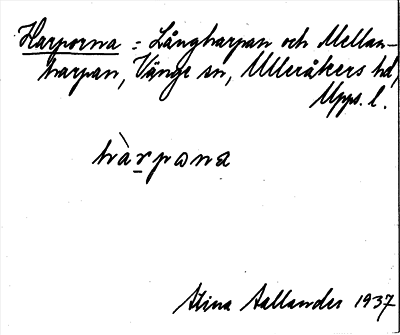 Harporna = Långharpan och Mellan-
harpan, Vänge sn, Ulleråkers hd,
Upps. l.
hàrpɷna
Stina Hallander 1937